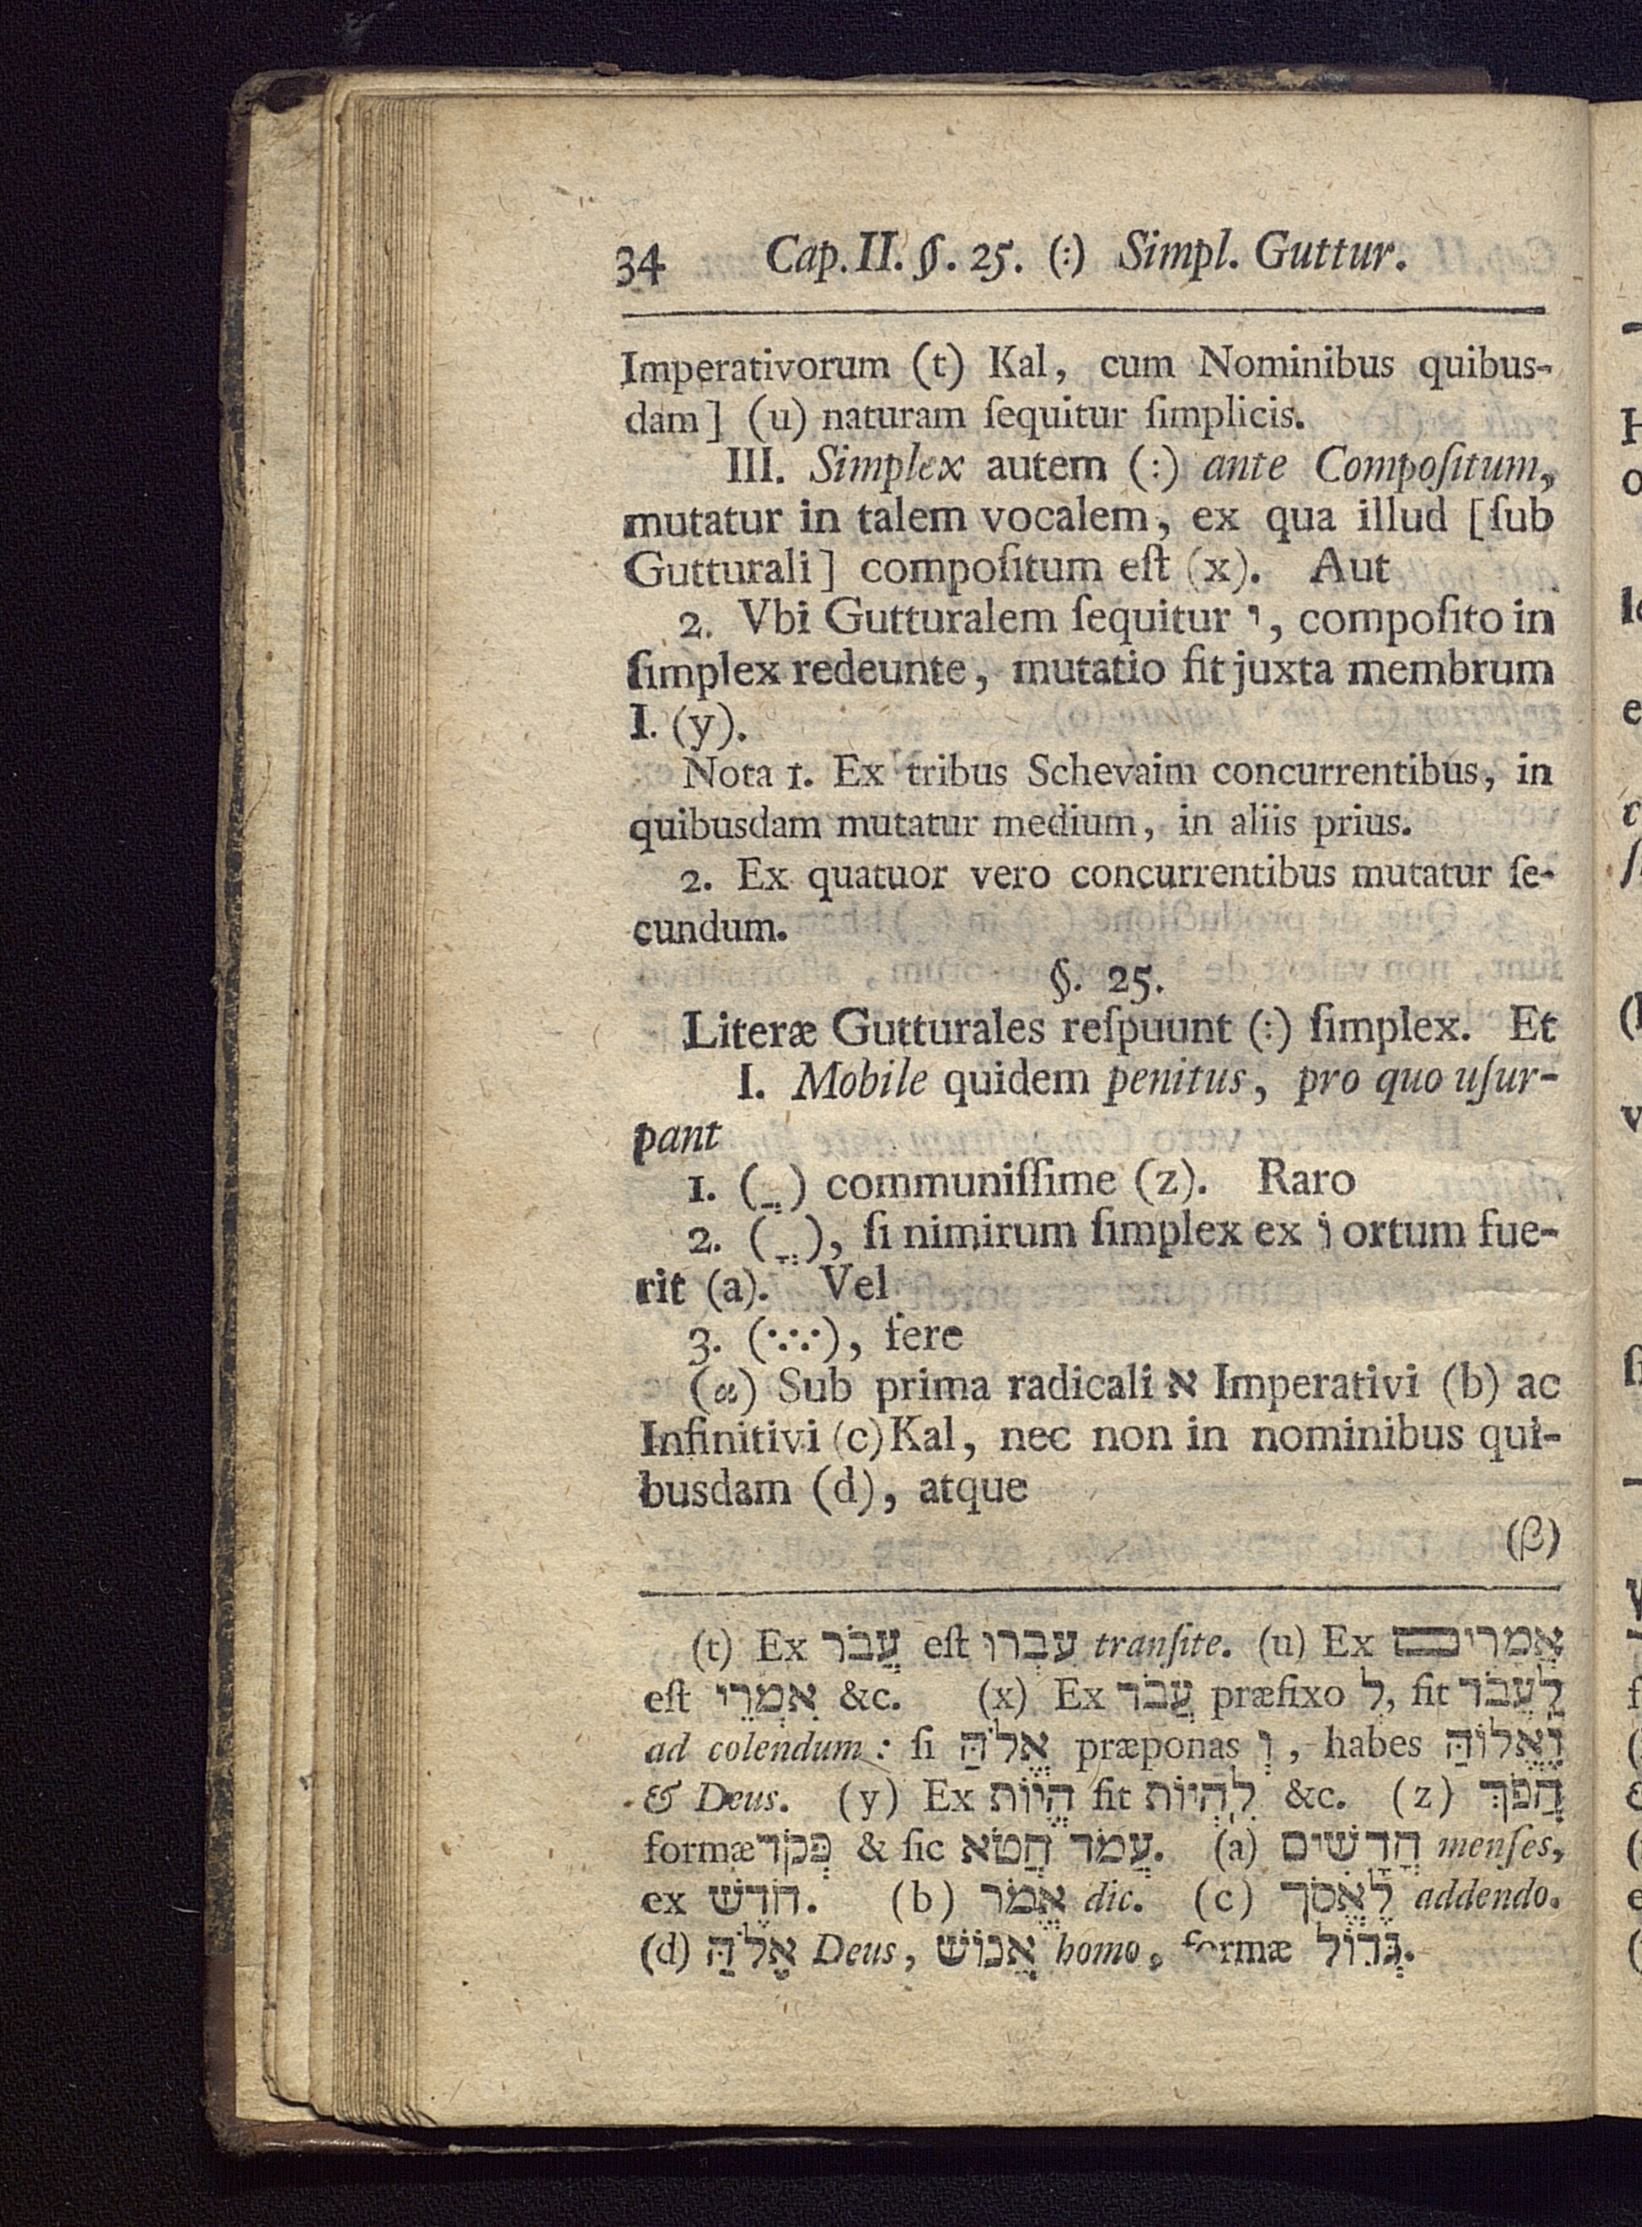 34 Cap. II. §. 25. (:) Simpl. Guttur.
Imperativorum (t) Kal, cum Nominibus quibus-
dam] (u) naturam ſequitur ſimplicis.
III. Simplex autem (:) ante Compoſitum,
mutatur in talem vocalem, ex qua illud [ſub
Gutturali] compoſitum eſt (x). Aut
2. Vbi Gutturalem ſequitur י, compoſito in
ſimplex redeunte, mutatio fit juxta membrum
I. (y).
Nota 1. Ex tribus Schevaim concurrentibus, in
quibusdam mutatur medium, in aliis prius.
2. Ex quatuor vero concurrentibus mutatur ſe-
cundum.
§. 25.
Literæ Gutturales reſpuunt (:) ſimplex. Et
I. Mobile quidem penitus, pro quo uſur-
pant
1. (ֲ) communiſſime (z). Raro
2. (ֳ), ſi nimirum ſimplex ex וֹ ortum fue-
rit (a). Vel
3. (ֱ), fere
(α) Sub prima radicali א Imperativi (b) ac
Infinitivi (c) Kal, nec non in nominibus qui-
busdam (d), atque
(β)
(t) Ex עֲבֹר eſt עִבְרוּ tranſite. (u) Ex אֲמָרִים
eſt אִמְרֵי &c. (x) Ex עֲבֹד præfixo לְ, fit לַעֲבֹד
ad colendum: ſi אֱלֹהַּ præponas וְ, habes וֶאֱלוֹהַּ
& Deus. (y) Ex הֱיוֹת fit לִהְיוֹת &c. (z) הֲפֹךְ
formæ פְּקֹד & ſic עֲמֹד חֲטֹא. (a) חֳדָשִׁים menſes,
ex חֹדֶשׁ. (b) אֱמֹר dic. (c) לֶאֱסֹף addendo.
(d) אֱלֹהַּ Deus, אֱנוֹשׁ homo, formæ גְּדוֹל.